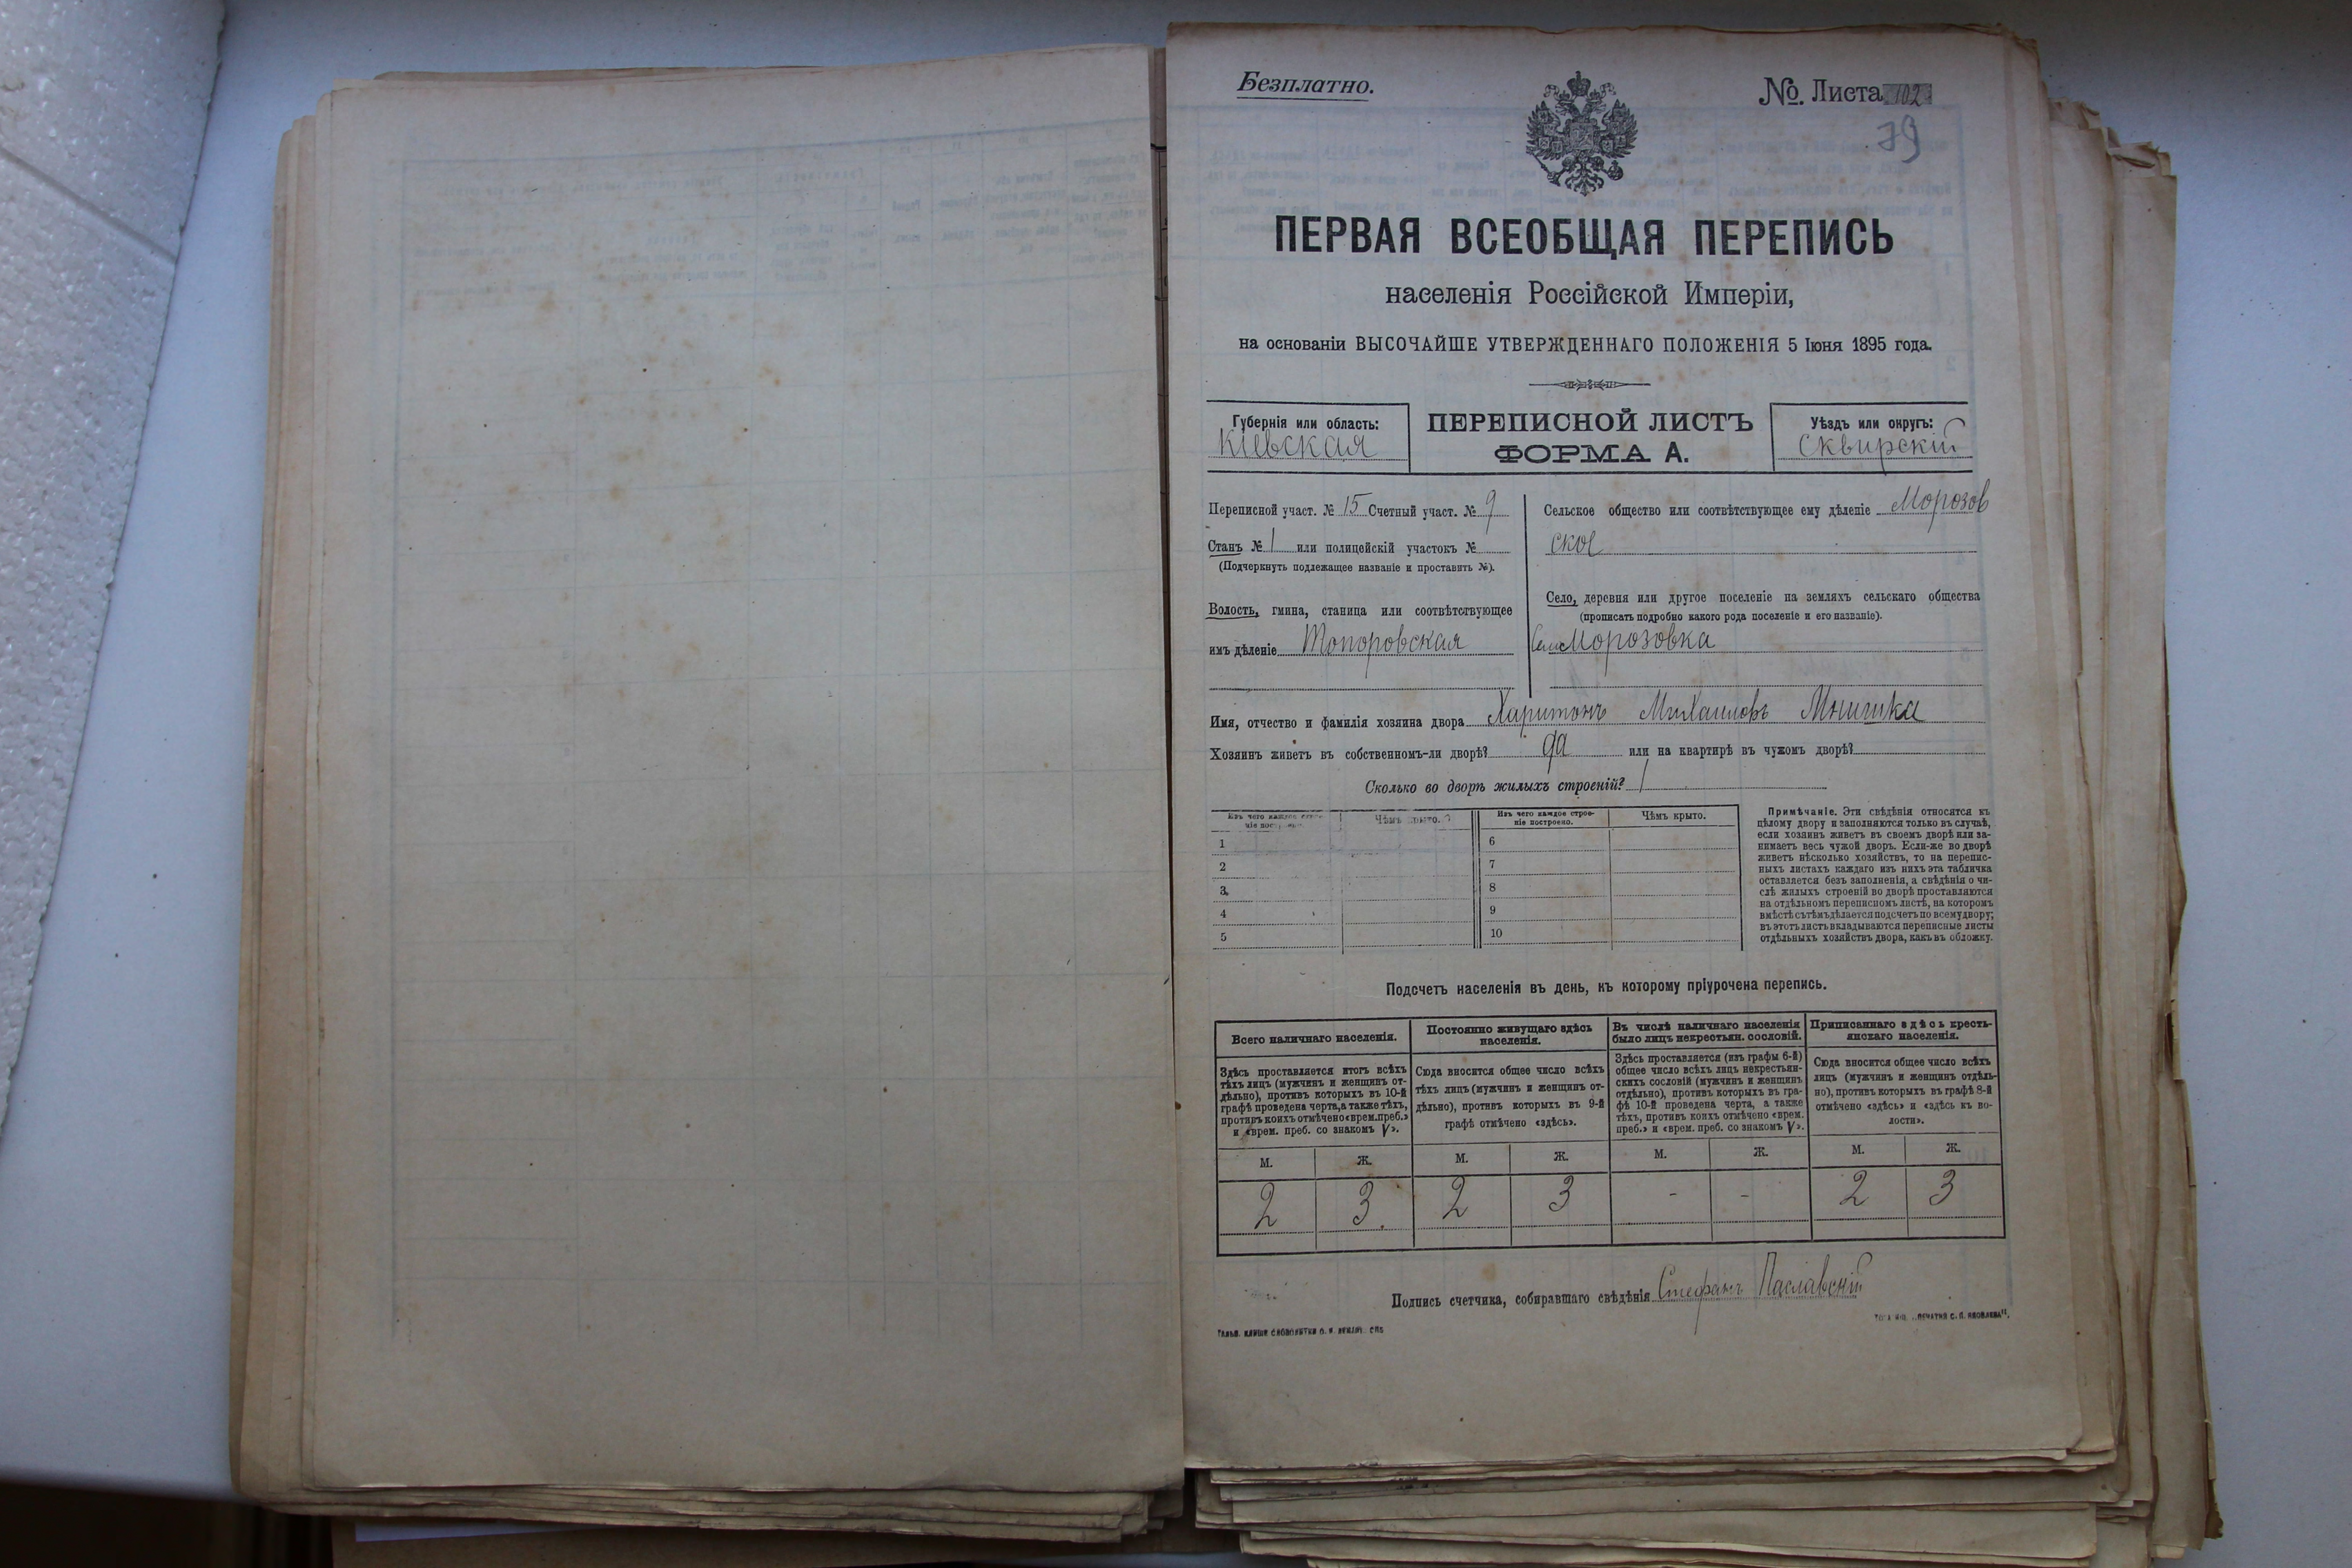 Безплатно.
№. Листа 102
79
ПЕРВАЯ ВСЕОБЩАЯ ПЕРЕПИСЬ
населенія Россійской Имперіи,
на основаніи ВЫСОЧАЙШЕ УТВЕРЖДЕННАГО ПОЛОЖЕНІЯ 5 Іюня 1895 года.
Губернія или область:
Кіевская
ПЕРЕПИСНОЙ ЛИСТЪ
ФОРМА А.
Уѣздъ или округъ:
Сквирскій
Переписной участ. № 15 Счетный участ. № 9
Станъ № 1 или полицейскій участокъ №
(Подчеркнуть подлежащее названіе и проставить №).
Волость, гмина, станица или соотвѣтствующее
имъ дѣленіе Топоровская
Сельское общество или соотвѣтствующее ему дѣленіе Морозов
ское
Село, деревня или другое поселеніе на земляхъ сельскаго общества
(прописать подробно какого рода поселеніе и его названіе).
Село Морозовка
Имя, отчество и фамилія хозяина двора Харитонъ Михаиловъ Мнишка
Хозяинъ живетъ въ собственномъ-ли дворѣ? да или на квартирѣ въ чужомъ дворѣ?
Сколько во дворѣ жилыхъ строеній? 1
Изъ чего каждое строе-
ніе построено.
Чѣмъ крыто.
Изъ чего каждое строе-
ніе построено.
Чѣмъ крыто.
1
2
3
4
5
6
7
8
9
10
Примѣчаніе. Эти свѣдѣнія относятся къ
цѣлому двору и заполняются только въ случаѣ,
если хозяинъ живетъ въ своемъ дворѣ или за-
нимаетъ весь чужой дворъ. Если-же во дворѣ
живетъ нѣсколько хозяйствъ, то на перепис-
ныхъ листахъ каждаго изъ нихъ эта табличка
оставляется безъ заполненія, а свѣдѣнія о чи-
слѣ жилыхъ строеній во дворѣ проставляются
на отдѣльномъ переписномъ листѣ, на которомъ
вмѣстѣ съ тѣмъ дѣлается подсчетъ по всему двору;
въ этотъ листъ вкладываются переписные листы
отдѣльныхъ хозяйствъ двора, какъ въ обложку.
Подсчетъ населенія въ день, къ которому пріурочена перепись.
Всего наличнаго населенія.
Здѣсь проставляется итогъ всѣхъ
тѣхъ лицъ (мужчинъ и женщинъ от-
дѣльно), противъ которыхъ въ 10-й
графѣ проведена черта, а также тѣхъ,
противъ коихъ отмѣчено «врем. преб.»
и «врем. преб. со знакомъ V».
Постоянно живущаго здѣсь
населенія.
Сюда вносится общее число всѣхъ
тѣхъ лицъ (мужчинъ и женщинъ от-
дѣльно), противъ которыхъ въ 9-й
графѣ отмѣчено «здѣсь».
Въ числѣ наличнаго населенія
было лицъ некрестьян. сословій.
Здѣсь проставляется (изъ графы 6-й)
общее число всѣхъ лицъ некрестьян-
скихъ сословій (мужчинъ и женщинъ
отдѣльно), противъ которыхъ въ гра-
фѣ 10-й проведена черта, а также
тѣхъ, противъ коихъ отмѣчено «врем.
преб.» и «врем. преб. со знакомъ V».
Приписаннаго здѣсь кресть-
янскаго населенія.
Сюда вносится общее число всѣхъ
лицъ (мужчинъ и женщинъ отдѣль-
но), противъ которыхъ въ графѣ 8-й
отмѣчено «здѣсь» и «здѣсь къ во-
лости».
М. Ж. М. Ж. М. Ж. М. Ж.
2 3. 2 3 - - 2 3
Подпись счетчика, собиравшаго свѣдѣнія Стефанъ Паславскій